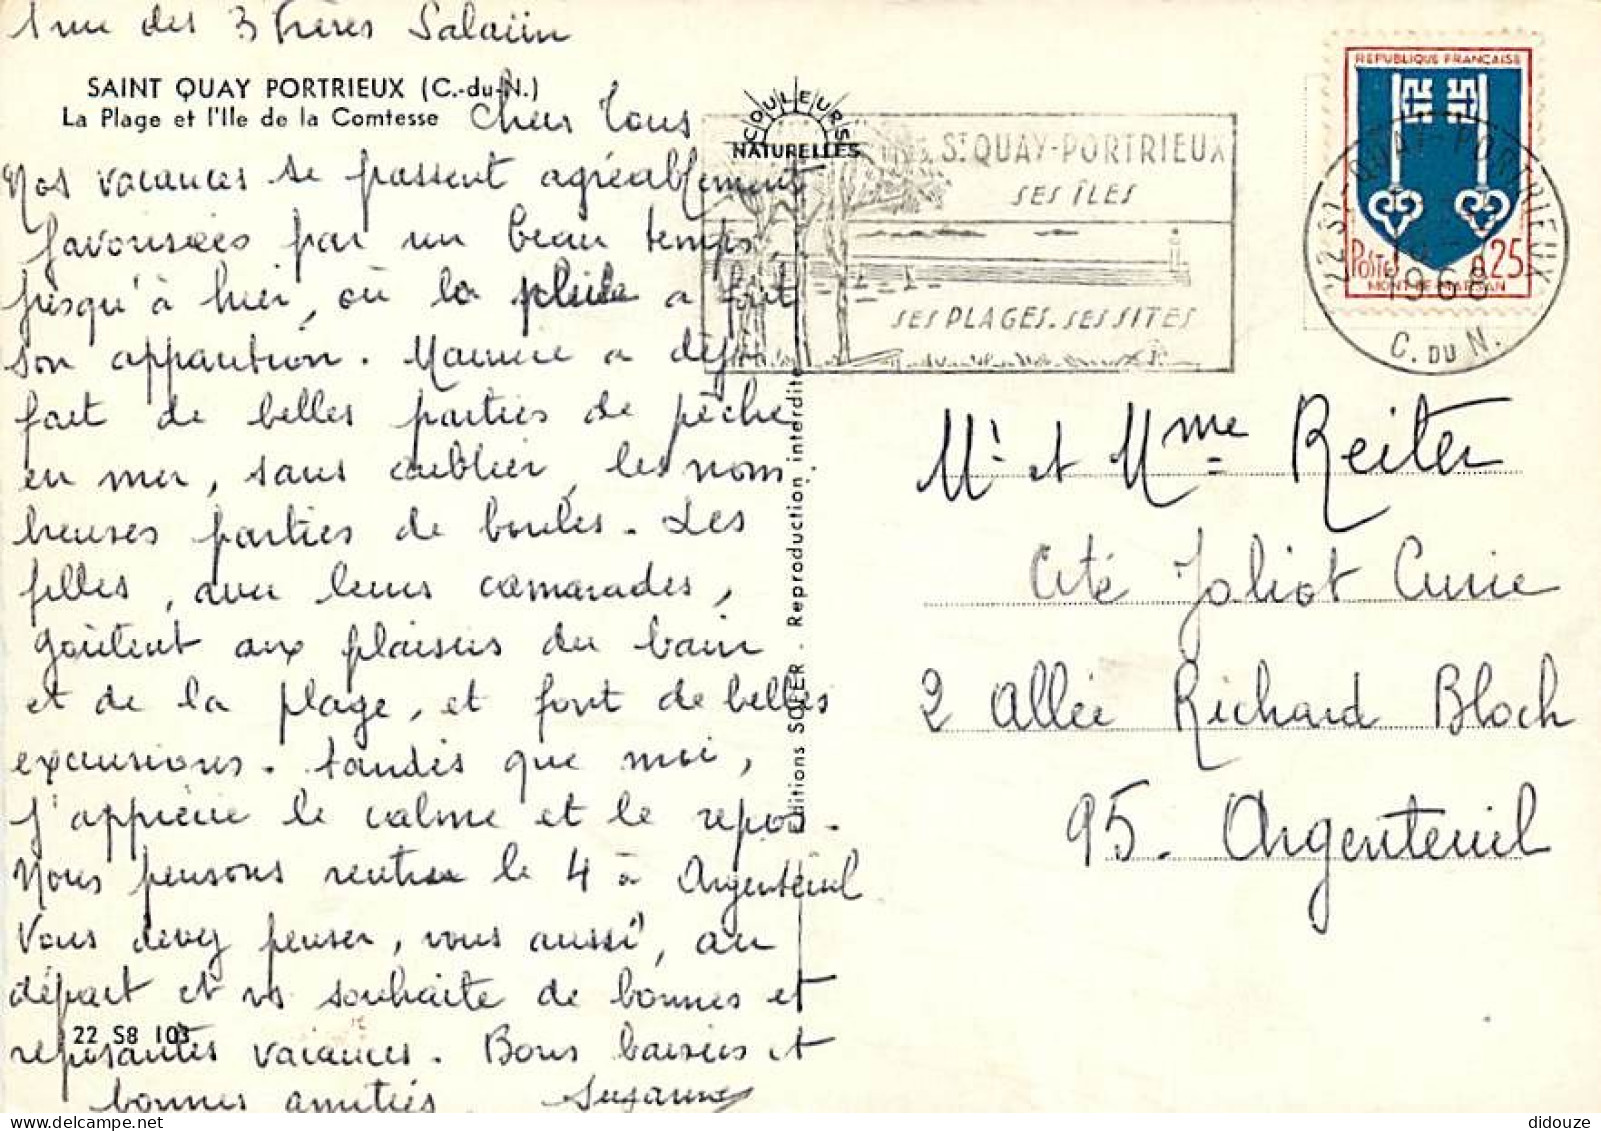 1 rue des 3 Frères Salaün
SAINT QUAY PORTRIEUX (C.-du-N.)
La Plage et l'Ile de la Comtesse
Chers Tous
Nos vacances se passent agréablement
favorisées par un beau temps,
jusqu'à hier, où la pluie a fait
son apparition. Maurice a déjà
fait de belles parties de pêche
en mer, sans oublier, les nom-
breuses parties de boules. Les
filles, avec leurs camarades,
goûtent aux plaisirs du bain
et de la plage, et font de belles
excursions. tandis que moi,
j'apprécie le calme et le repos.
Nous pensons rentrer le 4 à Argenteuil
Vous devez penser, vous aussi, au
départ et vs souhaite de bonnes et
22 S8 103
reposantes vacances. Bons baisers et
bonnes amitiés. Suzanne
COULEURS
NATURELLES
Editions SOFER. Reproduction interdite
ST QUAY-PORTRIEUX
SES ÎLES
SES PLAGES. SES SITES
REPUBLIQUE FRANÇAISE
POSTES 0,25
MONT-DE-MARSAN
22 ST-QUAY-PORTRIEUX
1968
C. DU N.
Mr et Mme Reiter
Cité Joliot Curie
2 Allée Richard Bloch
95. Argenteuil
didouze